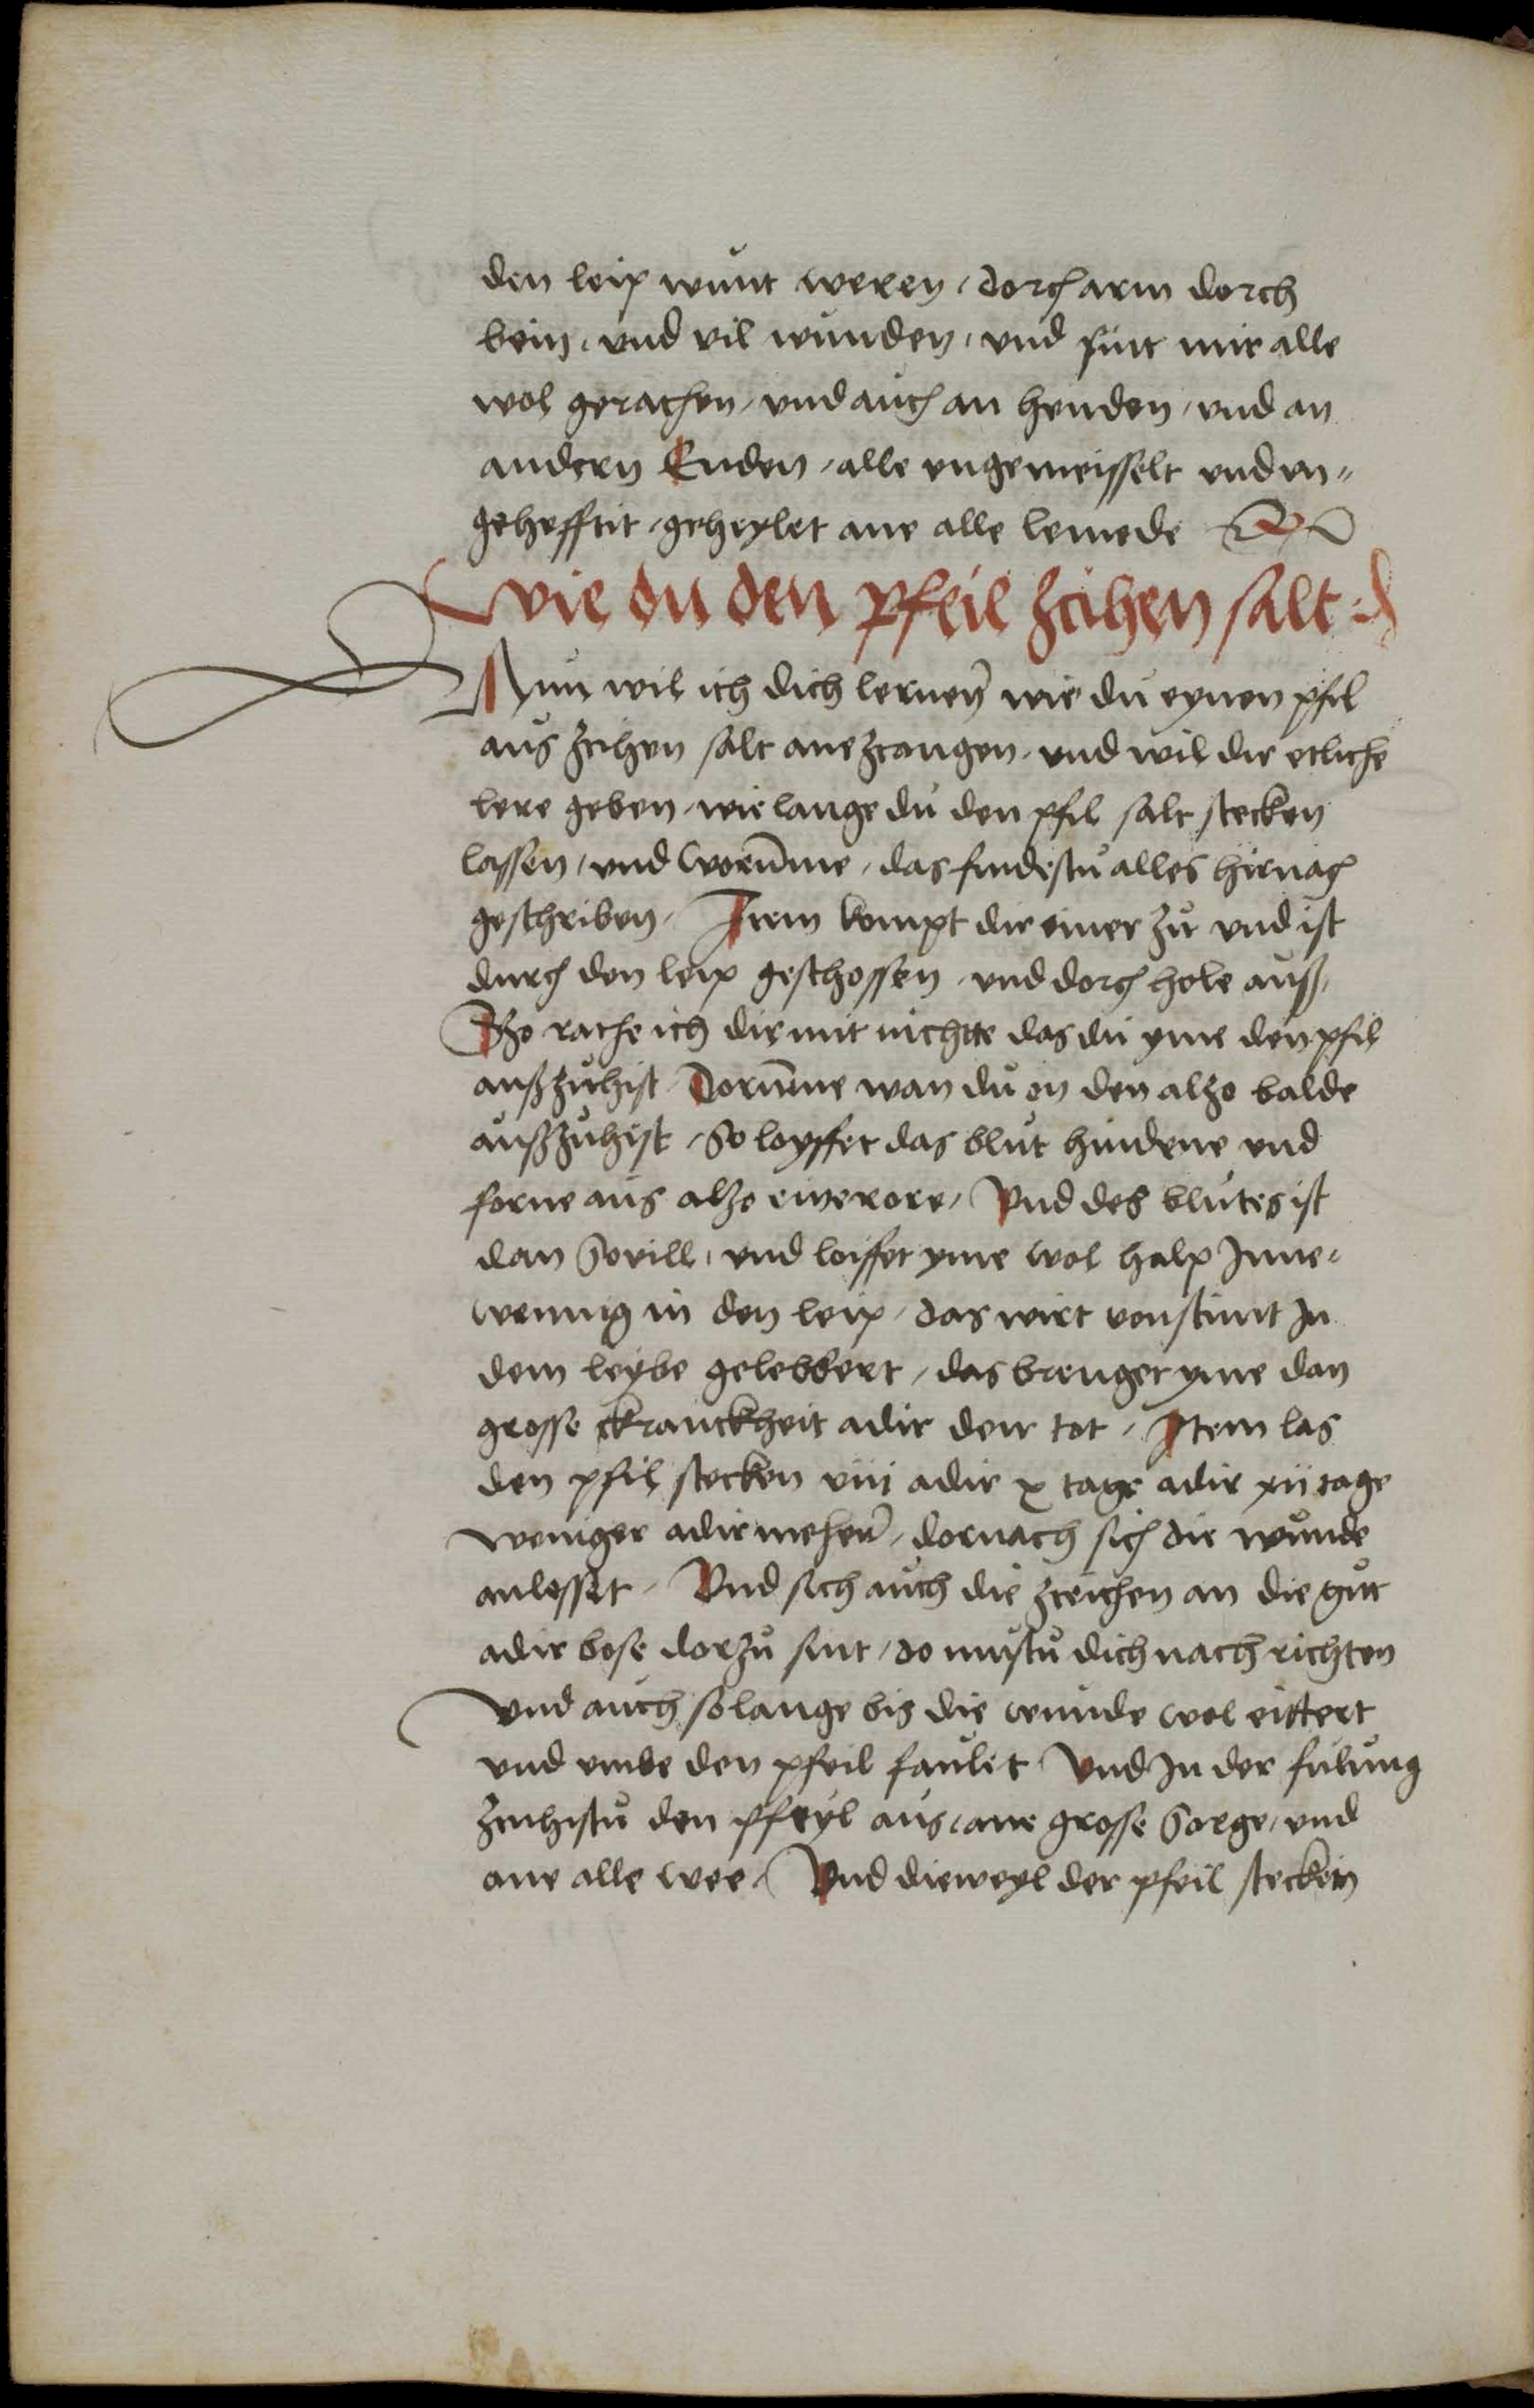 den leip wunt weren / dorch arm dorch
bein / und vil wunden / und sint mir alle
wol gerathen / und auch an henden / und an
andern Enden / alle ungemeisselt und un=
gehefftit / geheylet ane alle lemede
Wie du den pfeil zcihen salt
Nun wil ich dich lernen wie du eynen pfil
aus zcihen salt ane zcangen / und wil dir etliche
lere geben / wie lange du den pfil salt stecken
lassen / und worumme / das findestu alles hirnach
geschriben / Item kompt dir einer zu und ist
durch den leip geschossen / und dorch hole auß /
Szo rathe ich dir mit nichtte das du yme den pfil
außzuhist / Dorumme wan du en den alzo balde
außzuhist / So loyffet das blut hindene und
forne aus alzo eine rore / Und des blutes ist
dan Sovill / und loiffet yme wol halp Inne=
wennig in den leip / das wirt vonstunt In
dem leybe gelebbert / das brenget yme dan
grosse Kranckheit adir den tot / Item las
den pfil stecken viii adir x tage adir xii tage
weniger adir meher / dornach sich die wunde
anlesset / Und sich auch die zceichen an die gut
adir bose dorzu sint / do mustu dich nach richten
und auch solange bis die wunde wol eittert
und umbe den pfeil faulet Und In der fulung
zcuhistu den pfeyl aus / ane grosse Sorge / und
ane alle wee / Und dieweyl der pfeil stecken